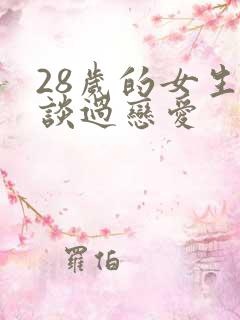 28歲的女生
談過戀愛
羅伯